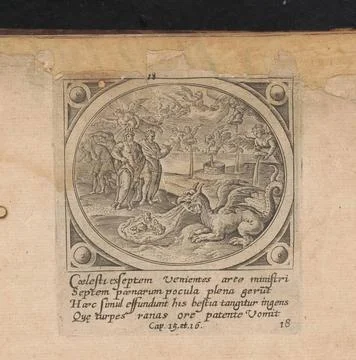 18
Cœlesti exseptem Venientes arce ministri
Septem pœnarum pocula plena gerūt
Hæc simul effundunt his bestia tangitur ingens
Quę turpes ranas ore patente Vomit
Cap. 15. et. 16.
18